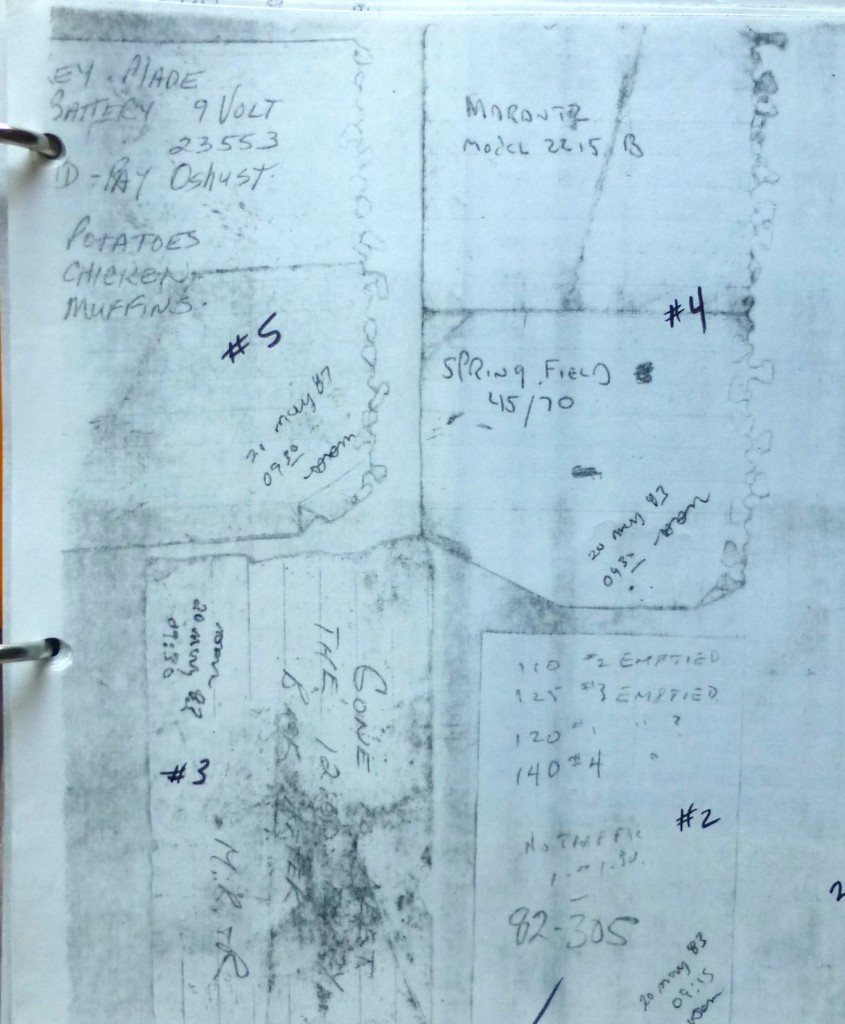 EY MADE
BATTERY 9 VOLT
23553
D - RAY Oshust.
POTATOES
CHICKEN
MUFFINS.
#5
20 may 83
0930
MARANTZ
Model 2215 B
#4
SPRING FIELD
45/70
20 may 83
0930
20 may 83
09:30
#3
GONE
THE 12:00
BACK AFTER
M.R. JR
110 #2 EMPTIED
125 #3 EMPTIED
120 #1 " ?
140 #4 "
#2
NO TRAFFIC
82-305
20 may 83
09:15
2